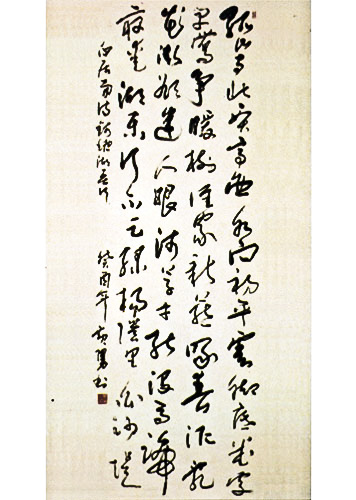 孤山寺北賈亭西水面初平雲腳低幾處
早鶯爭暖樹誰家新燕啄春泥亂
花漸欲迷人眼淺草才能沒馬蹄
最愛湖東行不足綠楊陰裏白沙堤
白居易詩錢塘湖春行 癸酉年 書